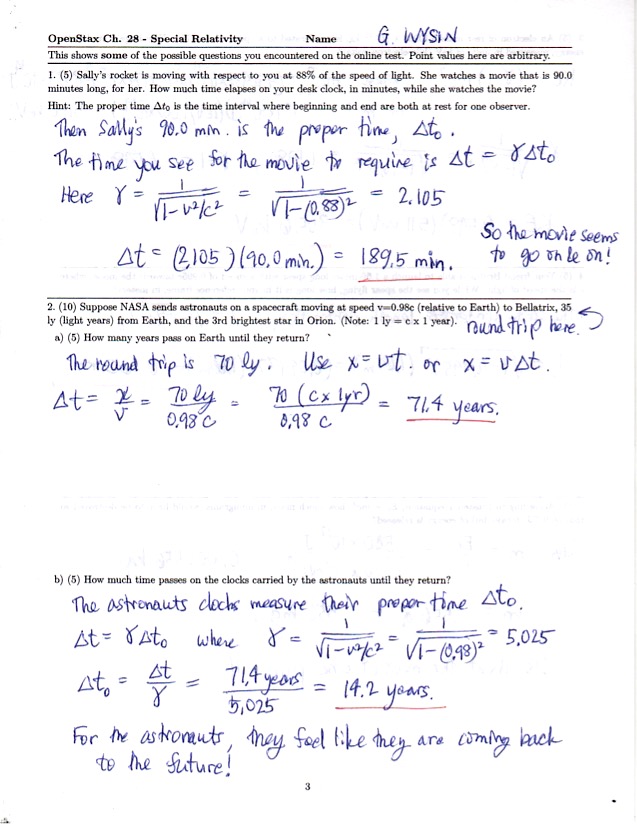 OpenStax Ch. 28 - Special Relativity Name G. WYSIN
This shows some of the possible questions you encountered on the online test. Point values here are arbitrary.
1. (5) Sally's rocket is moving with respect to you at 88% of the speed of light. She watches a movie that is 90.0
minutes long, for her. How much time elapses on your desk clock, in minutes, while she watches the movie?
Hint: The proper time Δt₀ is the time interval where beginning and end are both at rest for one observer.
Then Sally's 90.0 min. is the proper time, Δt₀.
The time you see for the movie to require is Δt = γΔt₀
Here γ = 1/√(1-v²/c²) = 1/√(1-(0.88)²) = 2.105
So the movie seems
to go on & on!
Δt = (2.105)(90.0 min.) = 189.5 min.
2. (10) Suppose NASA sends astronauts on a spacecraft moving at speed v=0.98c (relative to Earth) to Bellatrix, 35
ly (light years) from Earth, and the 3rd brightest star in Orion. (Note: 1 ly = c x 1 year). round trip here.
a) (5) How many years pass on Earth until they return?
The round trip is 70 ly. Use x = vt. or x = vΔt.
Δt = x/v = 70 ly/0.98 c = 70 (c x 1yr)/0.98 c = 71.4 years.
b) (5) How much time passes on the clocks carried by the astronauts until they return?
The astronauts clocks measure their proper time Δt₀.
Δt = γΔt₀ where γ = 1/√(1-v²/c²) = 1/√(1-(0.98)²) = 5.025
Δt₀ = Δt/γ = 71.4 years/5.025 = 14.2 years.
For the astronauts, they feel like they are coming back
to the future!
3